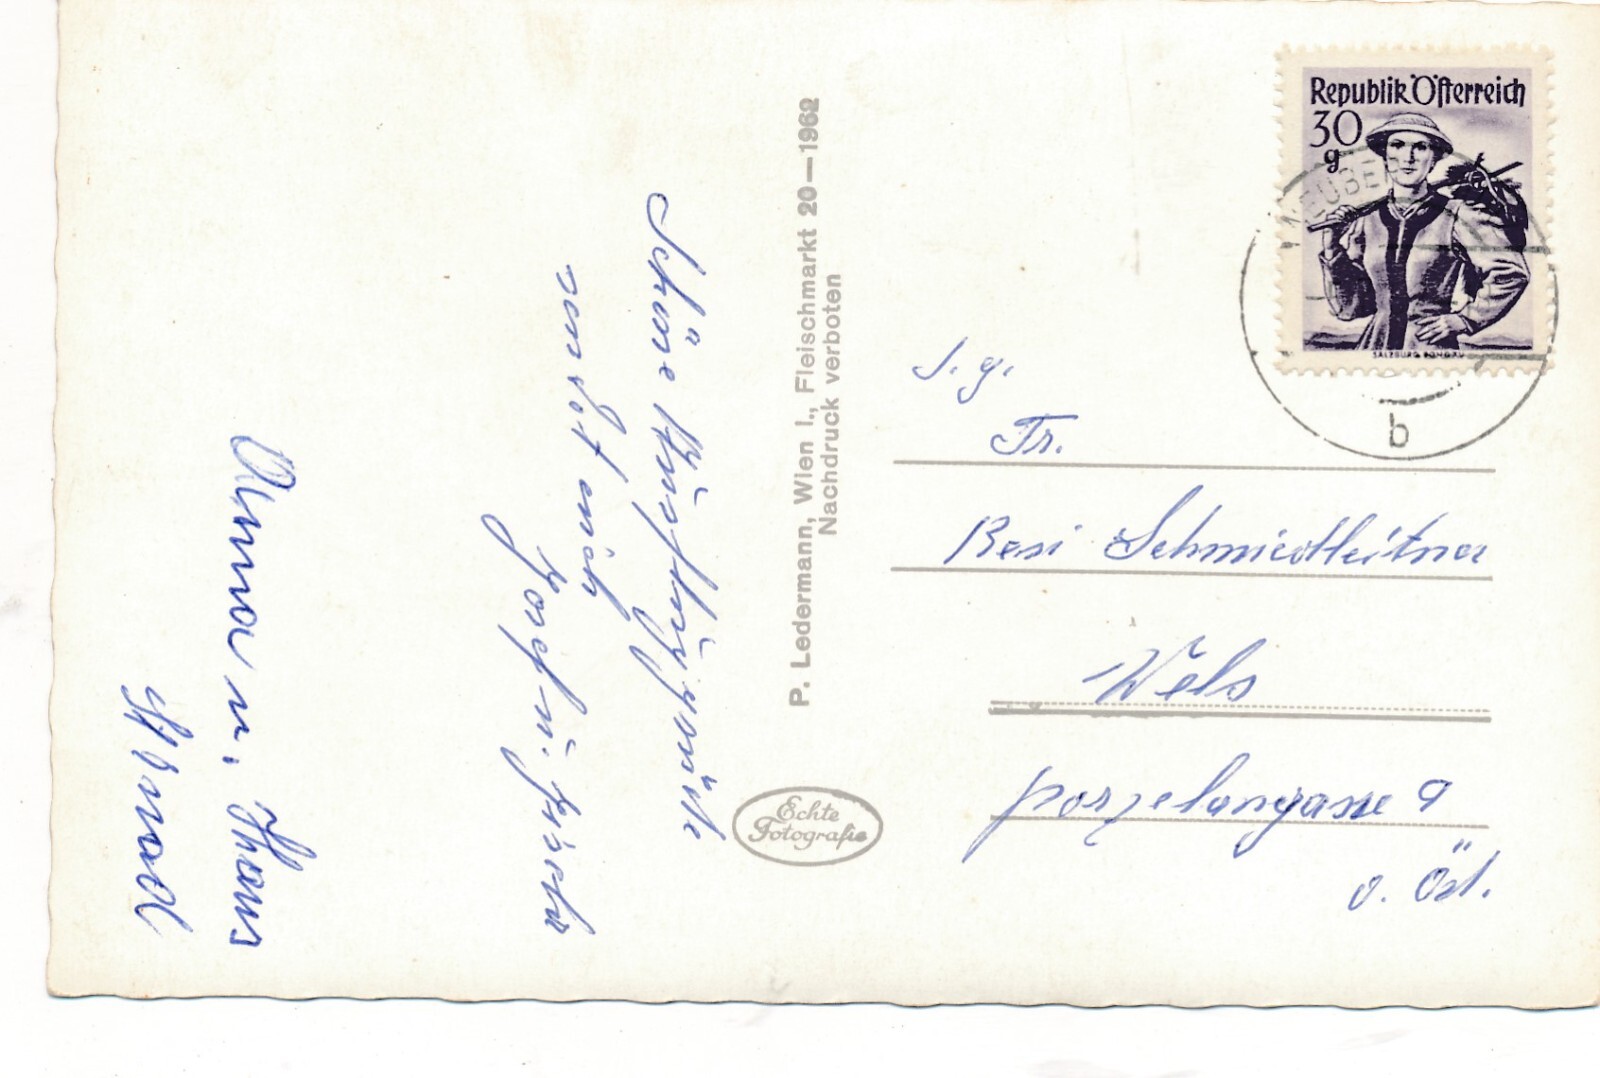 Schöne Ausflugsgrüße
sendet euch
Josef u.
Anna u. Hans
P. Ledermann, Wien I., Fleischmarkt 20—1962
Nachdruck verboten
Echte
Fotografie
Republik Österreich
30
g
SALZBURG PONGAU
b
S. g.
Fr.
Resi Schmiedleitner
Wels
Porzelangasse 9
O. Öst.